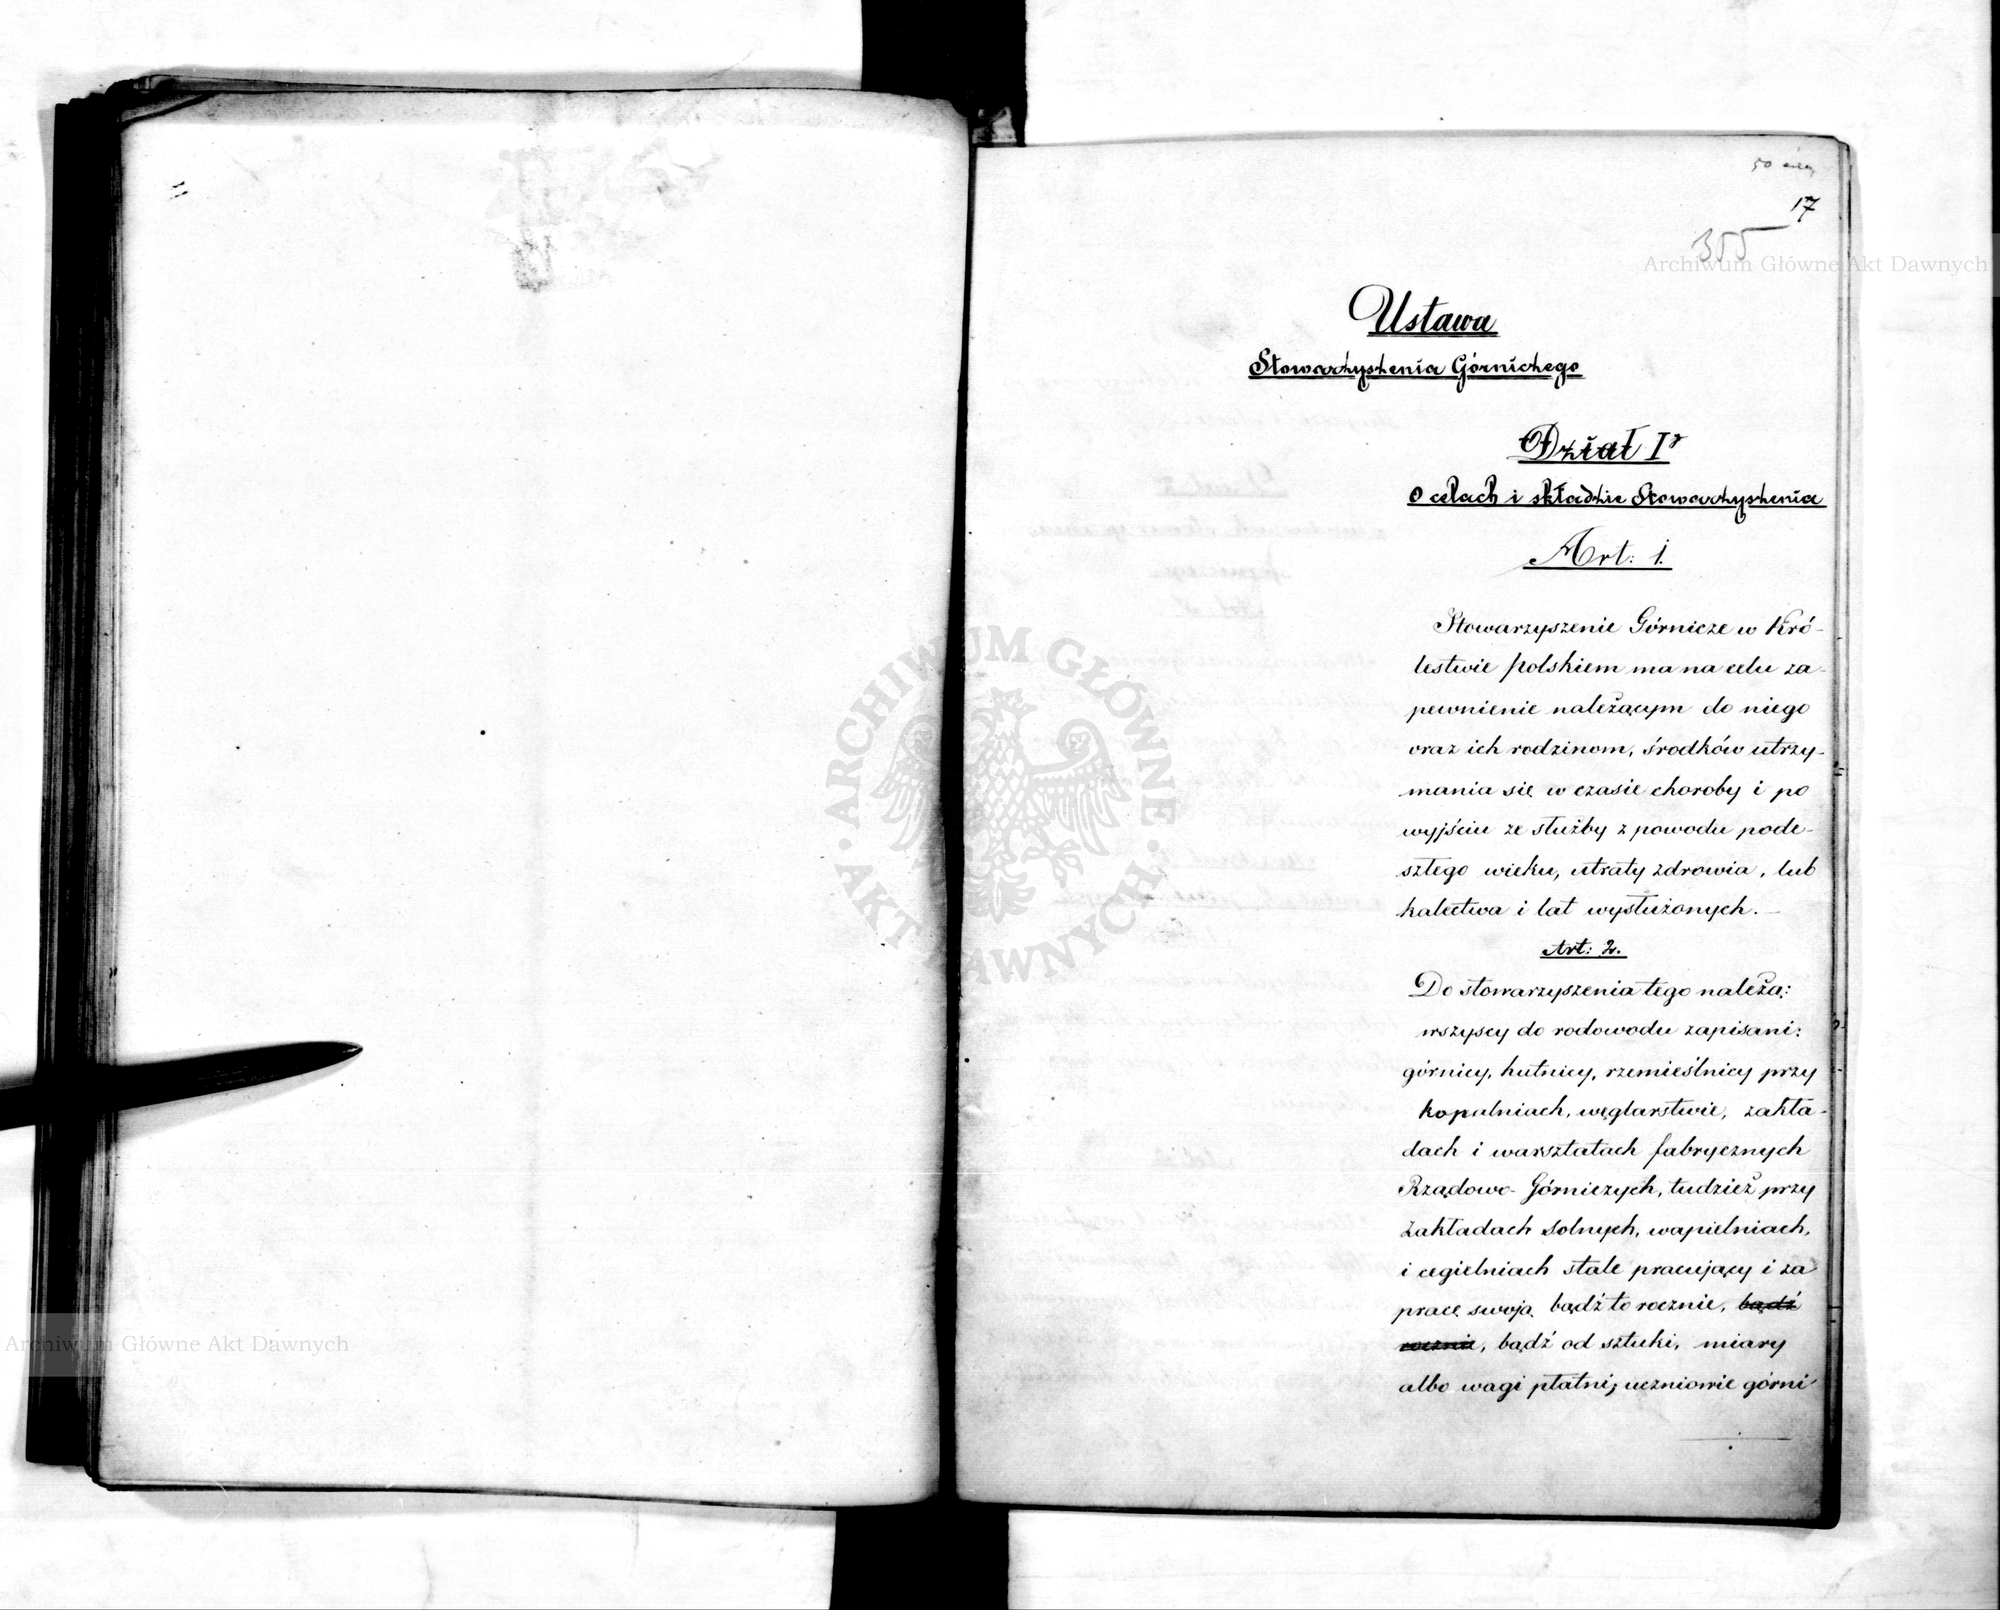 17
355
Ustawa
Stowarzyszenia Górniczego
Dział I
o celach i składzie Stowarzyszenia
Art: 1.
Stowarzyszenie Górnicze w Kró-
lestwie polskiem ma na celu za-
pewnienie należącym do niego
oraz ich rodzinom, środków utrzy-
mania się w czasie choroby i po
wyjściu ze służby z powodu pode-
szłego wieku, utraty zdrowia, lub
kalectwa i lat wysłużonych.
Art: 2.
Do stowarzyszenia tego należą:
wszyscy do rodowodu zapisani:
górnicy, hutnicy, rzemieślnicy przy
kopalniach, węglarstwie, zakła-
dach i warsztatach fabrycznych
Rządowo-Górniczych, tudzież przy
zakładach solnych, wapielniach,
i cegielniach stale pracujący i za
pracę swoją bądź to rocznie, bądź
rocznie, bądź od sztuki, miary
albo wagi płatni; uczniowie górni
Archiwum Główne Akt Dawnych
ARCHIWUM GŁÓWNE · AKT DAWNYCH ·
Archiwum Główne Akt Dawnych